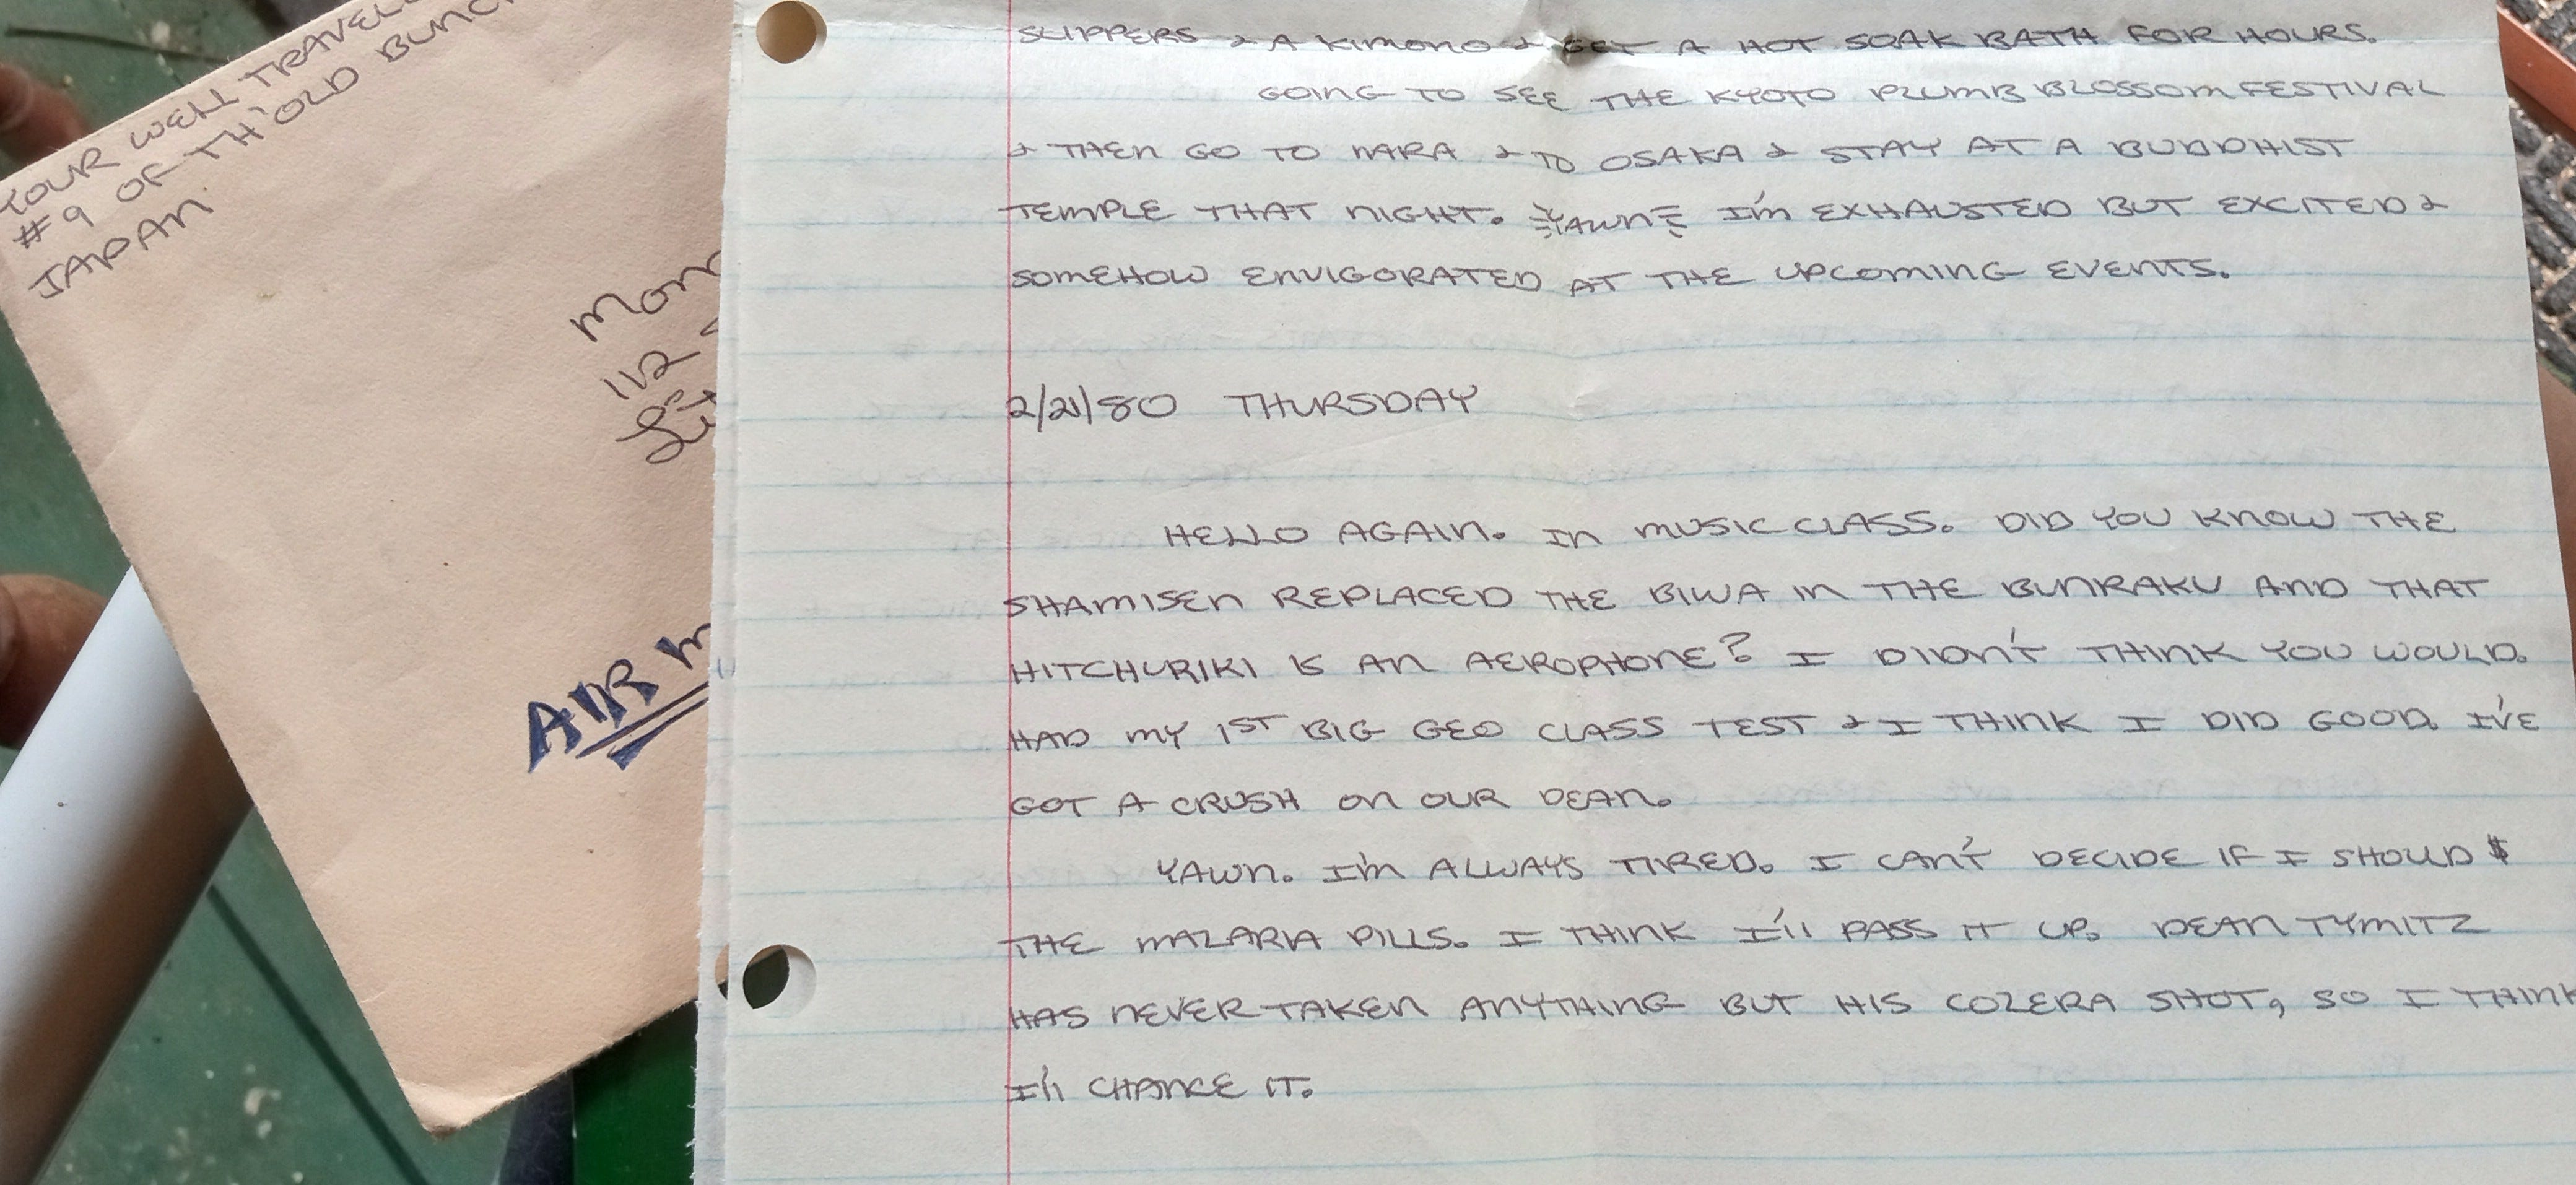 YOUR WELL TRAVEL
#9 OF TH' OLD BUNC
JAPAN
Mom
112
Lit
AIR M
SLIPPERS & A KIMONO & GET A HOT SOAK BATH FOR HOURS.
GOING TO SEE THE KYOTO PLUMB BLOSSOM FESTIVAL
& THEN GO TO NARA & TO OSAKA & STAY AT A BUDDHIST
TEMPLE THAT NIGHT. YAWN I'M EXHAUSTED BUT EXCITED &
SOMEHOW ENVIGORATED AT THE UPCOMING EVENTS.
2/21/80 THURSDAY
HELLO AGAIN. IN MUSIC CLASS. DID YOU KNOW THE
SHAMISEN REPLACED THE BIWA IN THE BUNRAKU AND THAT
HITCHURIKI IS AN AEROPHONE? I DIDN'T THINK YOU WOULD.
HAD MY 1ST BIG GEO CLASS TEST & I THINK I DID GOOD. I'VE
GOT A CRUSH ON OUR DEAN.
YAWN. I'M ALWAYS TIRED. I CAN'T DECIDE IF I SHOULD $
THE MALARIA PILLS. I THINK I'll PASS IT UP. DEAN TYMITZ
HAS NEVER TAKEN ANYTHING BUT HIS COLERA SHOT, SO I THINK
I'll CHANCE IT.